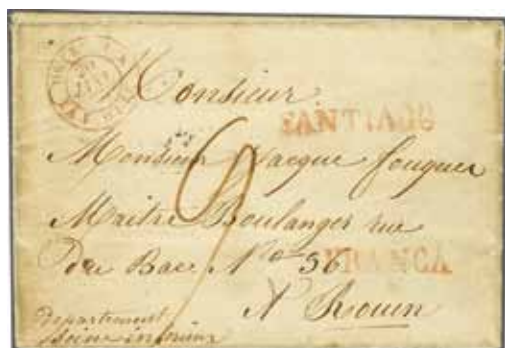 Monsieur
SANTIAGO
Monsieur Jacque fouquer
Maitre Boulanger rue
du Bac N° 56
FRANCA
A Rouen
departement
Seine inferieur